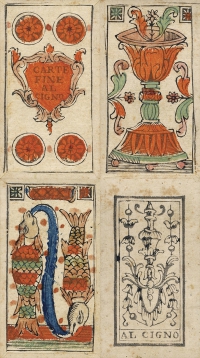 CARTE
FINE
AL
CIGNO
AL CIGNO